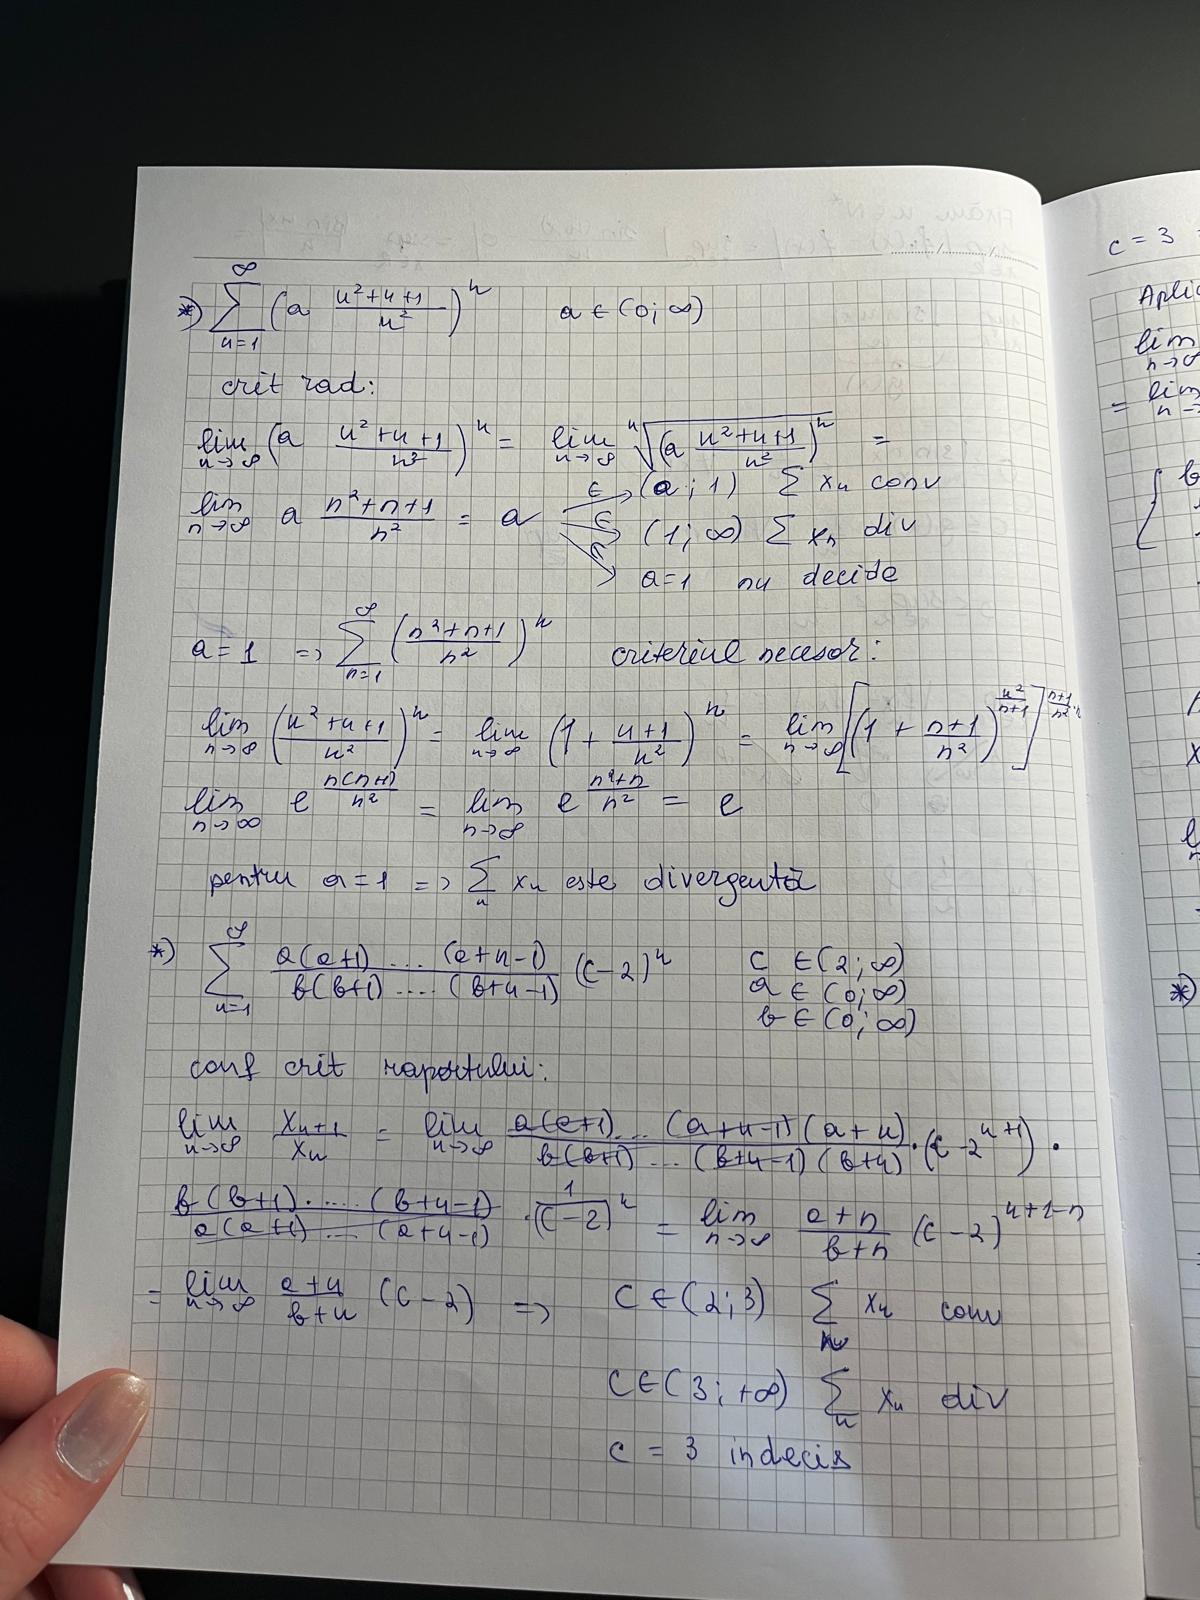 *) ∑_{n=1}^{∞} (a (n²+n+1)/n²)ⁿ a ∈ (0; ∞)
crit rad:
lim_{n→∞} (a (n²+n+1)/n²)ⁿ = lim_{n→∞} ⁿ√((a (n²+n+1)/n²)ⁿ) =
lim_{n→∞} a (n²+n+1)/n² = a ∈→ (0; 1) ∑ xₙ conv
∈→ (1; ∞) ∑ xₙ div
∈→ a=1 nu decide
a=1 => ∑_{n=1}^{∞} ((n²+n+1)/n²)ⁿ criteriul necesar:
lim_{n→∞} ((n²+n+1)/n²)ⁿ = lim_{n→∞} (1 + (n+1)/n²)ⁿ = lim_{n→∞} [(1 + (n+1)/n²)^{n²/(n+1)}]^{(n+1)/n²·n}
lim_{n→∞} e^{n(n+1)/n²} = lim_{n→∞} e^{(n²+n)/n²} = e
pentru a=1 => ∑ₙ xₙ este divergentă
*) ∑_{n=1}^{∞} (a(a+1)....(a+n-1))/(b(b+1)....(b+n-1)) (c-2)ⁿ c ∈ (2; ∞)
a ∈ (0; ∞)
b ∈ (0; ∞)
conf crit raportului:
lim_{n→∞} xₙ₊₁/xₙ = lim_{n→∞} (a(a+1)...(a+n-1)(a+n))/(b(b+1)...(b+n-1)(b+n)) · (c-2^{n+1}) ·
(b(b+1)·....(b+n-1))/(a(a+1)....(a+n-1)) · 1/(c-2)ⁿ = lim_{n→∞} (a+n)/(b+n) (c-2)^{n+1-n}
= lim_{n→∞} (a+n)/(b+n) (c-2) => c ∈ (2; 3) ∑ₙ xₙ conv
c ∈ (3; +∞) ∑ₙ xₙ div
c = 3 indecis
c = 3
Aplic
lim_{n→∞}
= lim
*)